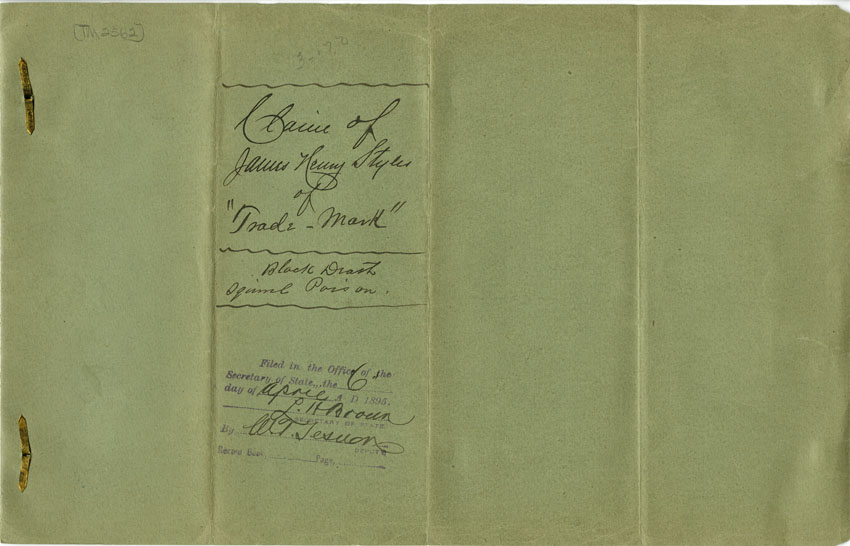 [TM 2362]
Claim of
James Henry Styles
of
"Trade-Mark"
Black Death
Squirrel Poison.
Filed in the Office of the
Secretary of State, the 6
day of April A D 1895.
L. H. Brown
SECRETARY OF STATE
By W. T. Sesnon
DEPUTY
Record Book Page